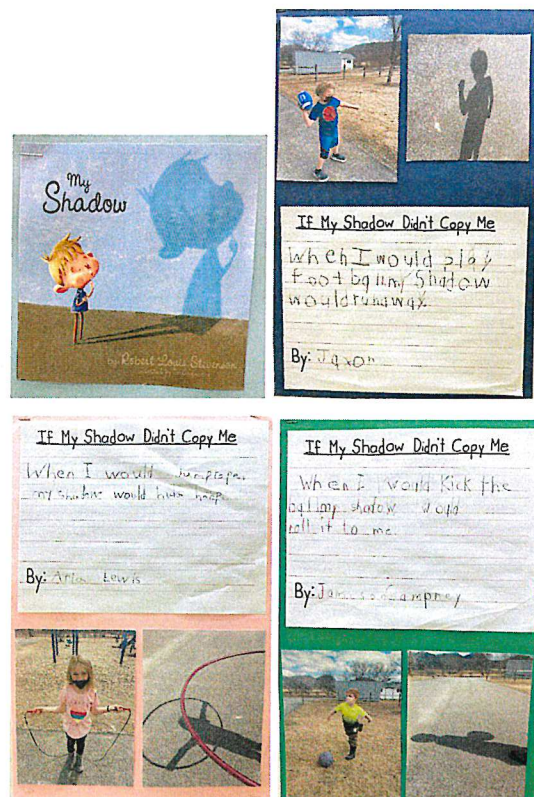 My
Shadow
by Robert Louis Stevenson
If My Shadow Didn't Copy Me
When I would play
foot ball my Shadow
would run away.
By: Jaxon
If My Shadow Didn't Copy Me
When I would jumprope
my shadow would hula hoop
By: Aria Lewis
If My Shadow Didn't Copy Me
When I would Kick the
ball my shadow would
roll it to me.
By: Jameson